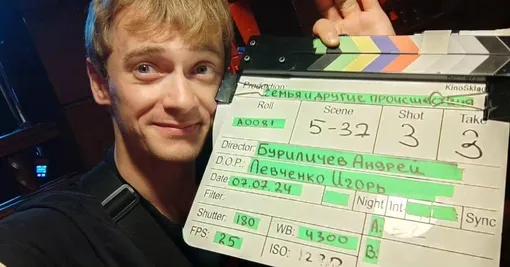 Production KinoSklad
Семья и другие происшествия
Roll Scene Shot Take
A0081 5-32 3 3
Director: Буриличев Андрей
D.O.P.: Левченко Игорь
Date: 07.07.24 Night Int Sync
Filter: A:
Shutter: 180 WB: 4300 B:
FPS: 25 ISO: